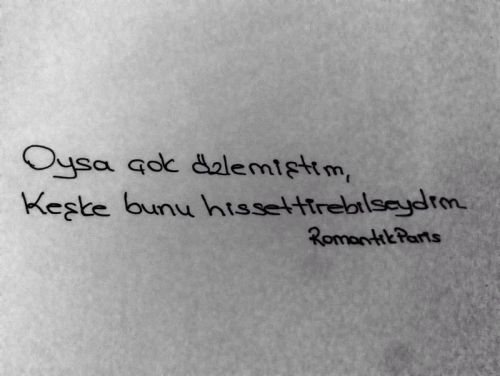 Oysa çok özlemiştim,
Keşke bunu hissettirebilseydim
RomantikParis